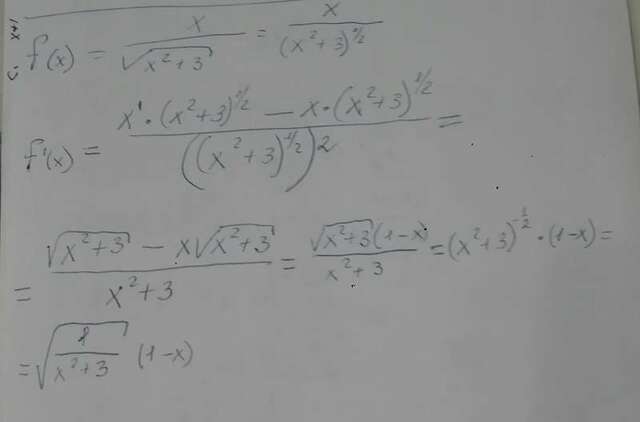 f(x) = x / √(x²+3) = x / (x²+3)^(1/2)
f'(x) = (x'·(x²+3)^(1/2) − x·(x²+3)^(1/2)) / ((x²+3)^(1/2))² =
= (√(x²+3) − x√(x²+3)) / (x²+3) = (√(x²+3)(1−x)) / (x²+3) = (x²+3)^(−1/2)·(1−x) =
= √(1/(x²+3)) (1−x)